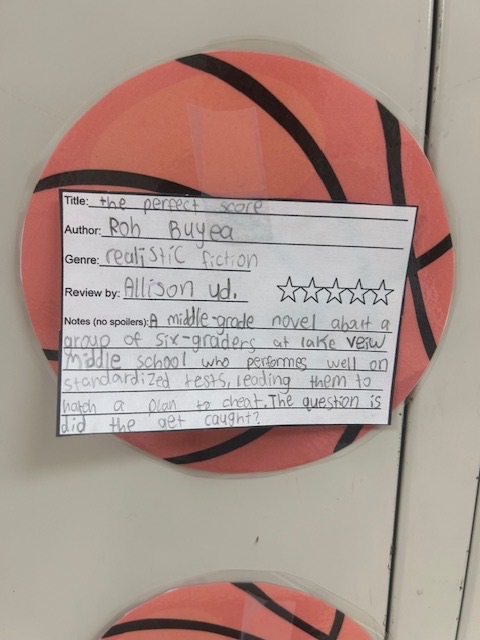 Title: the perfect score
Author: Rob Buyea
Genre: realistic fiction
Review by: Allison ud.
Notes (no spoilers): A middle-grade novel abart a
group of six-graders at lake veiw
middle school who performes well on
standardized tests, leading them to
hatch a plan to cheat. The question is
did the get caught?